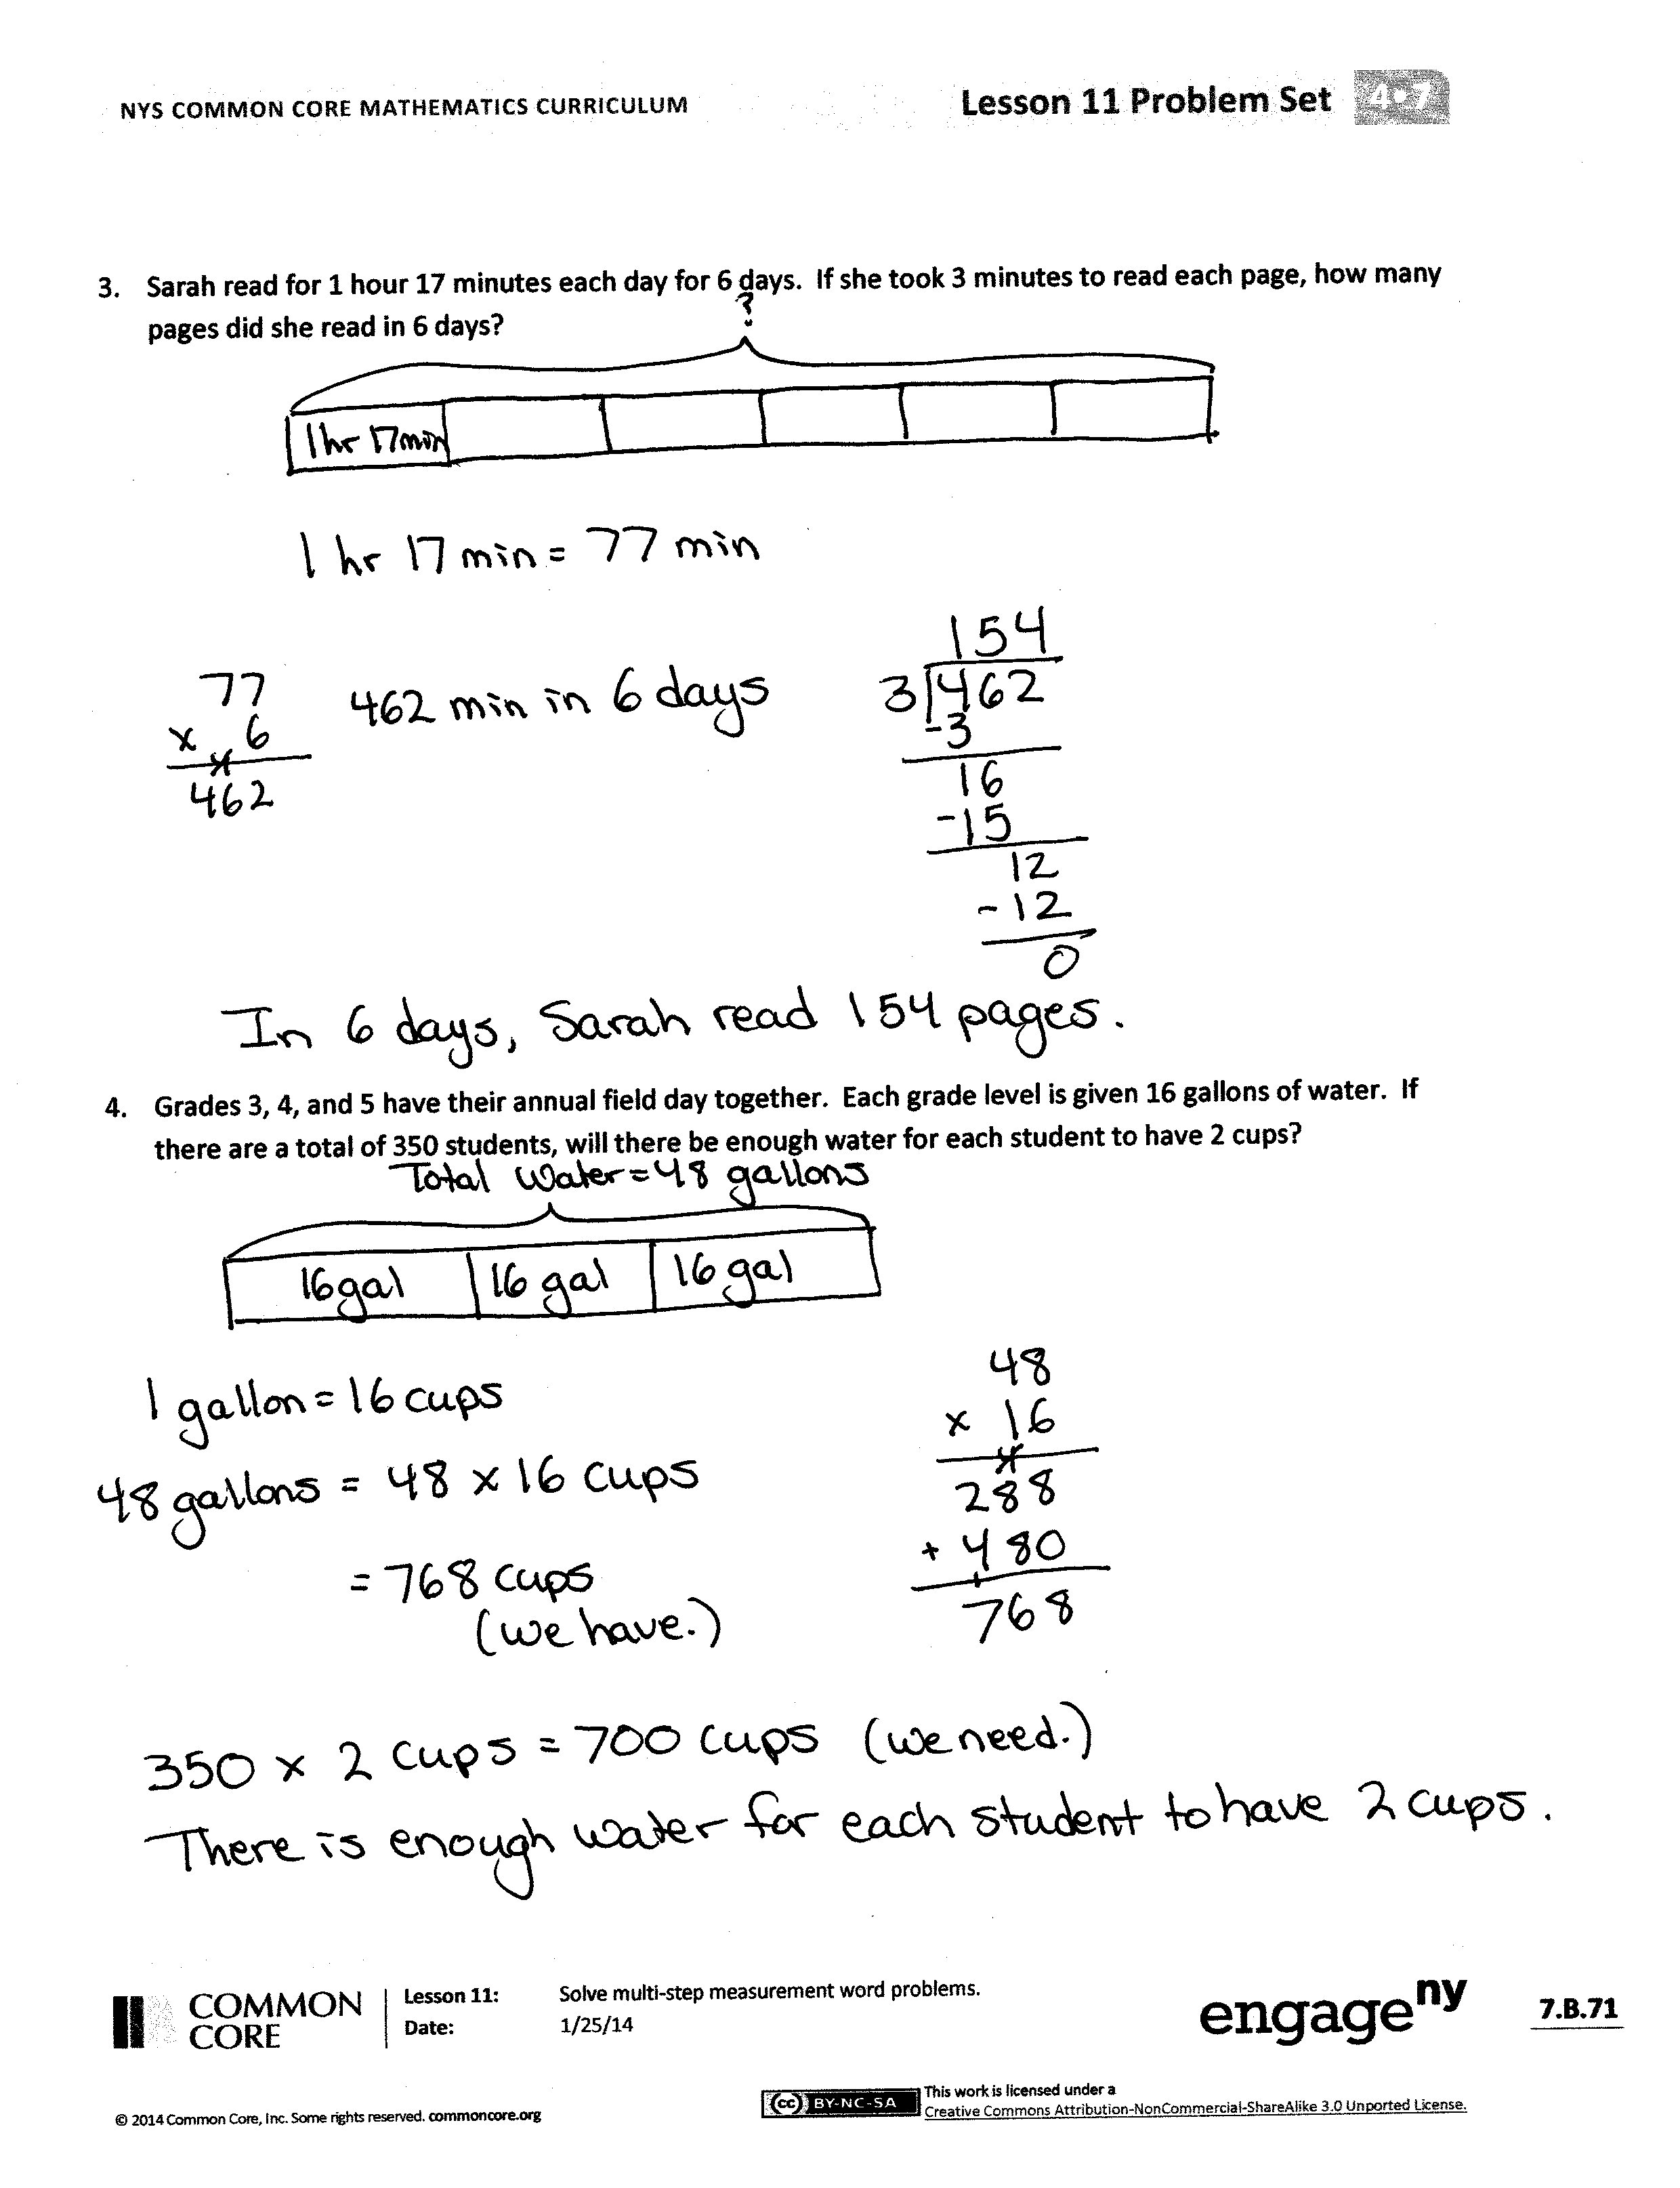 NYS COMMON CORE MATHEMATICS CURRICULUM
Lesson 11 Problem Set 4•7
3. Sarah read for 1 hour 17 minutes each day for 6 days. If she took 3 minutes to read each page, how many
pages did she read in 6 days?
?
1hr 17min
1 hr 17 min = 77 min
77
x 6
4
462
462 min in 6 days
154
3 462
-3
16
-15
12
-12
0
In 6 days, Sarah read 154 pages.
4. Grades 3, 4, and 5 have their annual field day together. Each grade level is given 16 gallons of water. If
there are a total of 350 students, will there be enough water for each student to have 2 cups?
Total Water = 48 gallons
16gal 16 gal 16 gal
1 gallon = 16 cups
48 gallons = 48 x 16 cups
= 768 cups
(we have.)
48
x 16
4
288
+ 480
1
768
350 x 2 cups = 700 cups (we need.)
There is enough water for each student to have 2 cups.
COMMON
CORE
Lesson 11: Solve multi-step measurement word problems.
Date: 1/25/14
engageny
7.B.71
© 2014 Common Core, Inc. Some rights reserved. commoncore.org
cc BY-NC-SA
This work is licensed under a
Creative Commons Attribution-NonCommercial-ShareAlike 3.0 Unported License.